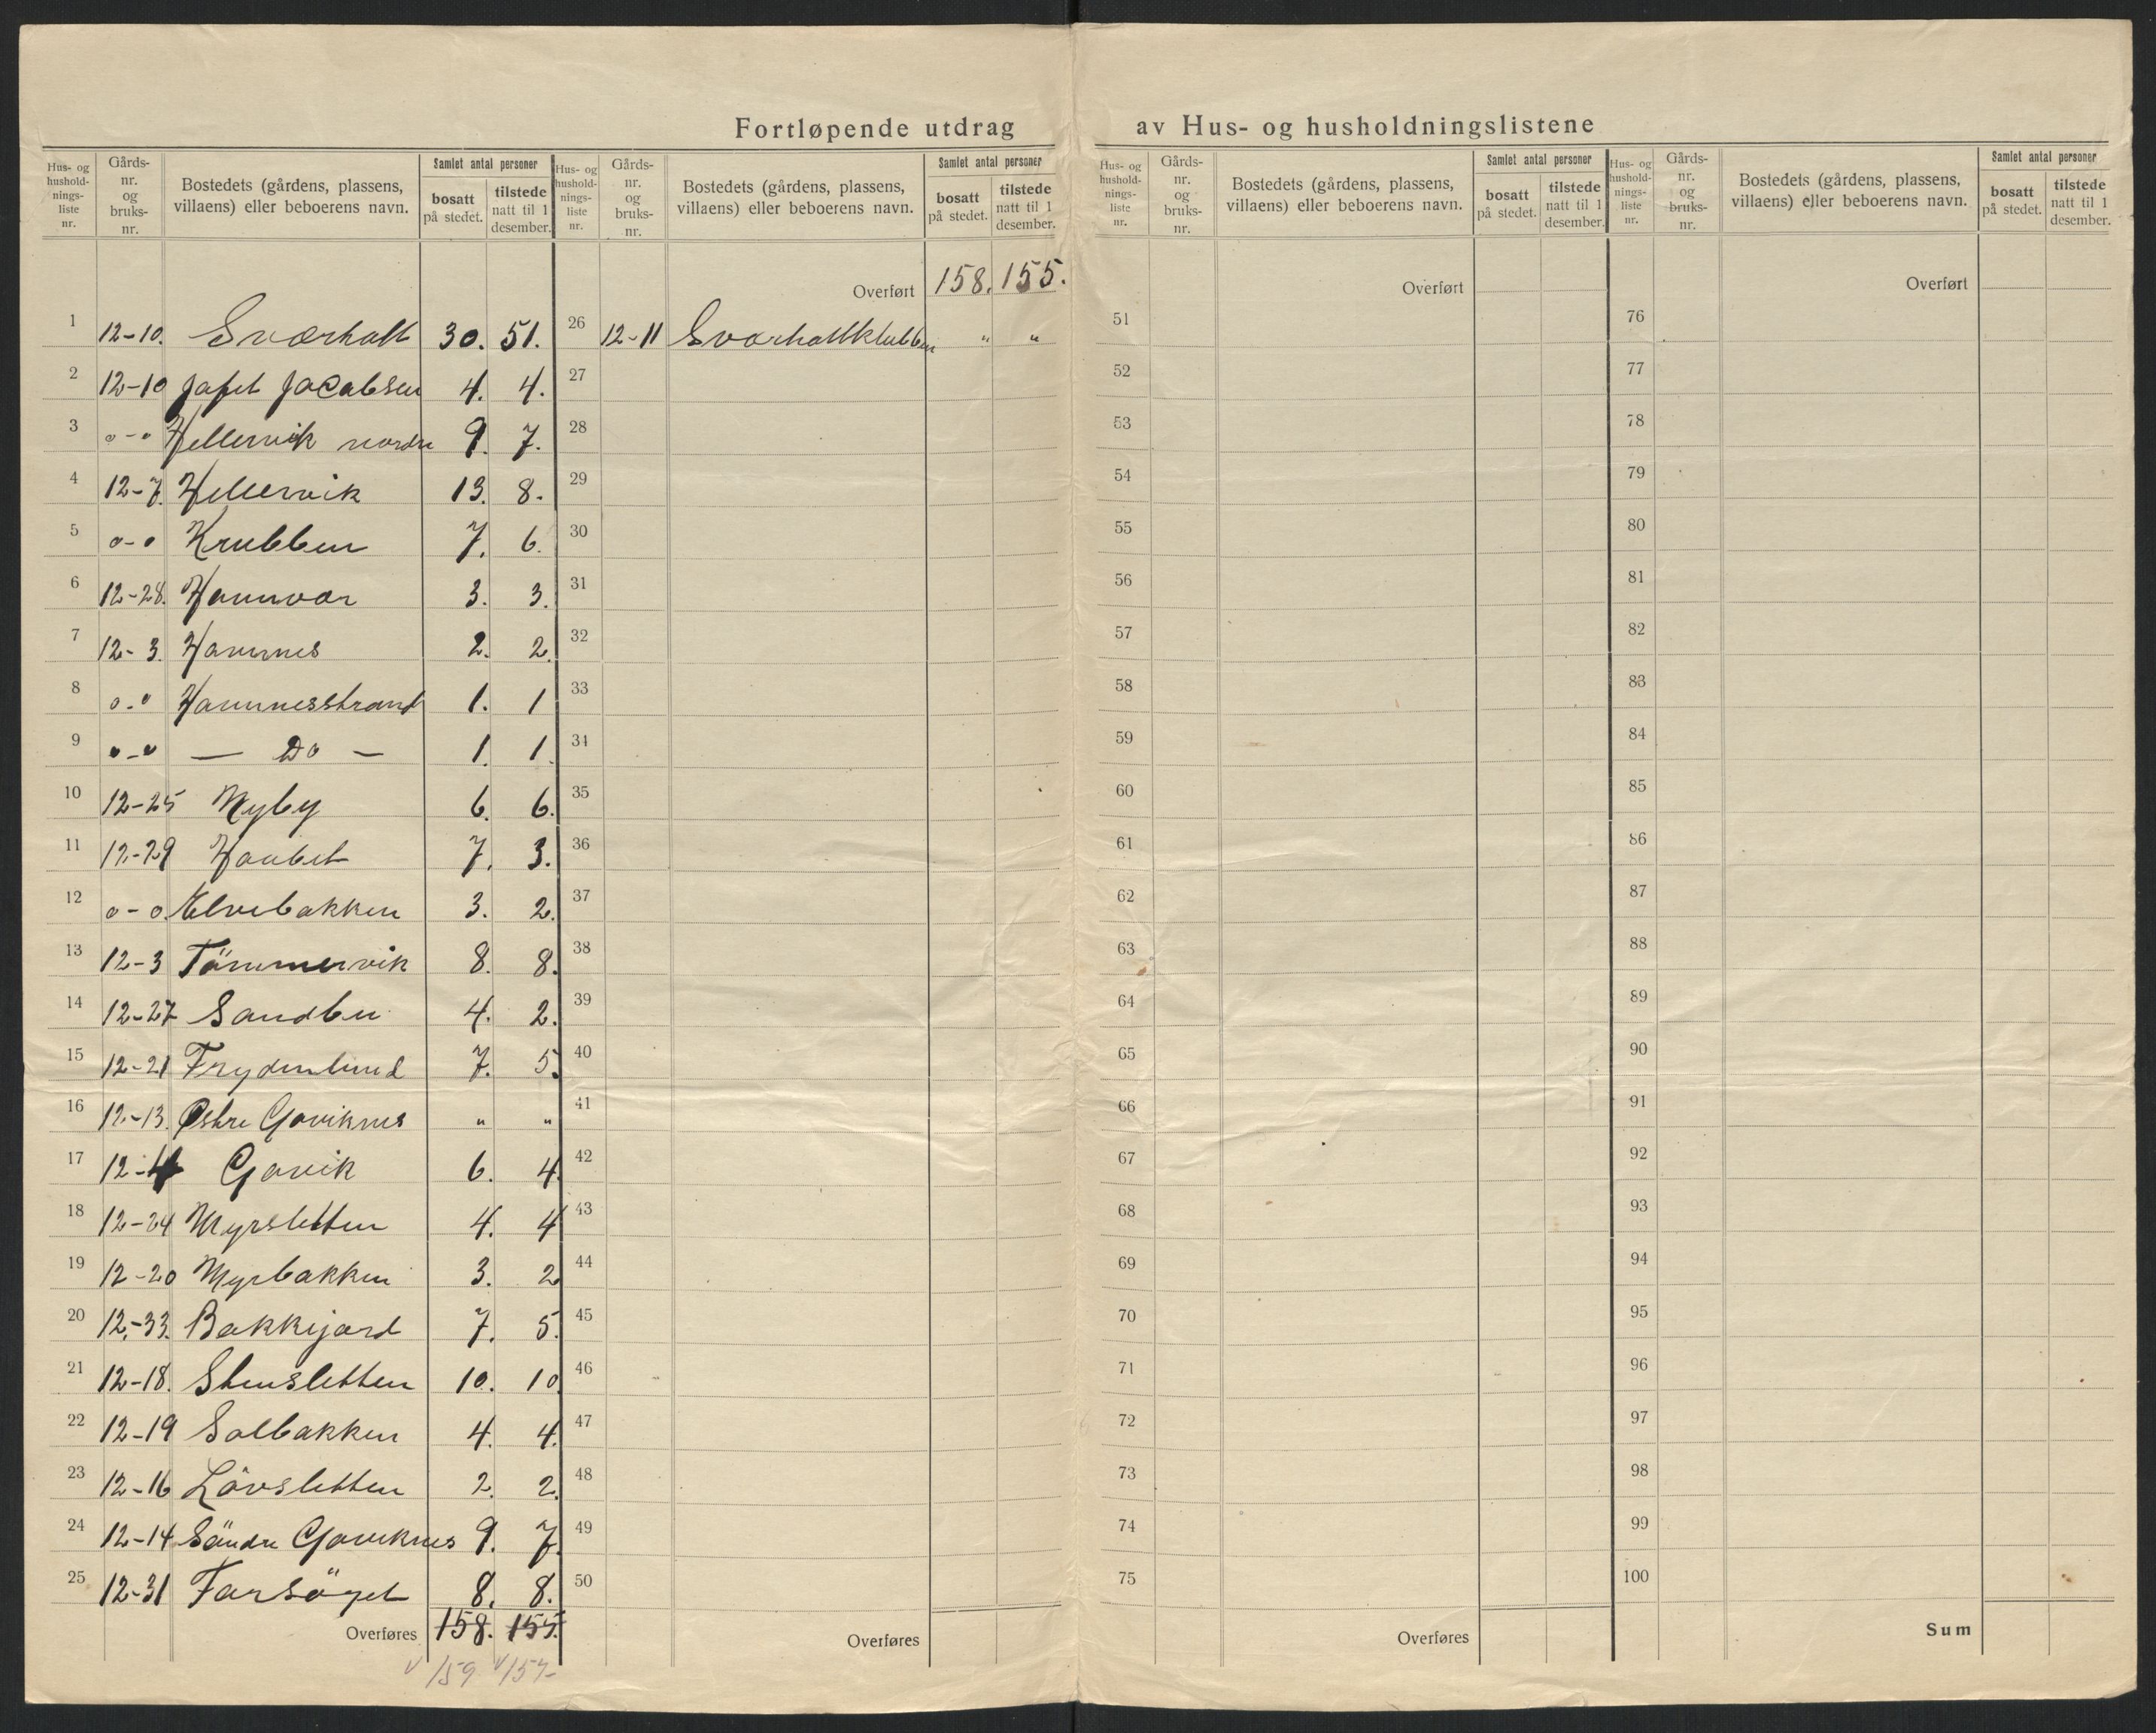 Fortløpende utdrag av Hus- og husholdningslistene
Hus- og hushold-nings-liste nr. | Gårds-nr. og bruks-nr. | Bostedets (gårdens, plassens, villaens) eller beboerens navn. | Samlet antal personer | bosatt på stedet. | tilstede natt til 1 desember.
1 12-10. Sværholt 30. 51.
2 12-10 Jafet Jacobsen 4. 4.
3 "-" Hellervik nordre 9. 7.
4 12-7. Hellervik 13. 8.
5 "-" Krubben 7. 6.
6 12-28. Havnvær 3. 3.
7 12-3. Havnnes 2. 2.
8 "-" Havnnesstrand 1. 1
9 "-" — Do — 1. 1.
10 12-25 Myby 6. 6.
11 12-29 Haabet 7. 3.
12 "-" Elvebakken 3. 2.
13 12-3 Tömmervik 8. 8.
14 12-27 Sandbu 4. 2.
15 12-21 Frydenlund 7. 5.
16 12-13. Østre Gaviknes " "
17 12-4 Gavik 6. 4.
18 12-24 Myrsletten 4. 4
19 12-20 Myrbakken 3. 2
20 12-33. Bakkejord 7. 5.
21 12-18. Stensletten 10. 10.
22 12-19 Solbakken 4. 4.
23 12-16 Lövsletten 2. 2.
24 12-14 Söndre Gaviknes 9. 7.
25 12-31 Forsöget 8. 8.
Overføres 158. 155.
159 157
Hus- og hushold-nings-liste nr. | Gårds-nr. og bruks-nr. | Bostedets (gårdens, plassens, villaens) eller beboerens navn. | Samlet antal personer | bosatt på stedet. | tilstede natt til 1 desember.
Overført 158. 155.
26 12-11 Sværholtklubben " "
27
28
29
30
31
32
33
34
35
36
37
38
39
40
41
42
43
44
45
46
47
48
49
50
Overføres
Hus- og hushold-nings-liste nr. | Gårds-nr. og bruks-nr. | Bostedets (gårdens, plassens, villaens) eller beboerens navn. | Samlet antal personer | bosatt på stedet. | tilstede natt til 1 desember.
Overført
51
52
53
54
55
56
57
58
59
60
61
62
63
64
65
66
67
68
69
70
71
72
73
74
75
Overføres
Hus- og hushold-nings-liste nr. | Gårds-nr. og bruks-nr. | Bostedets (gårdens, plassens, villaens) eller beboerens navn. | Samlet antal personer | bosatt på stedet. | tilstede natt til 1 desember.
Overført
76
77
78
79
80
81
82
83
84
85
86
87
88
89
90
91
92
93
94
95
96
97
98
99
100
Sum